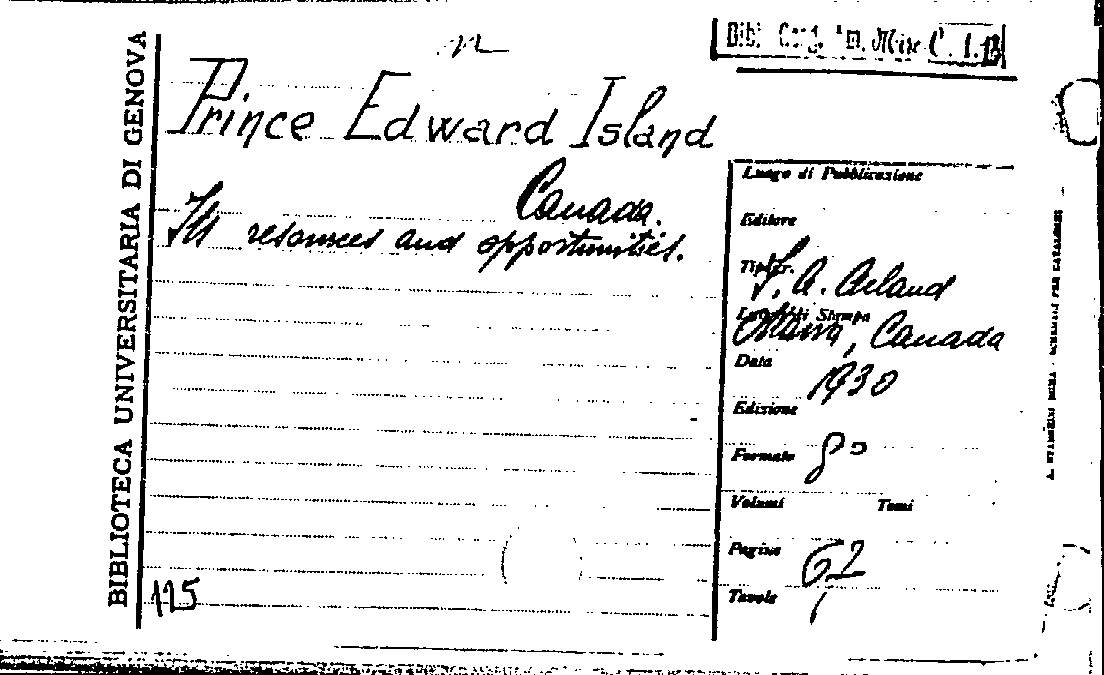 BIBLIOTECA UNIVERSITARIA DI GENOVA
n
Prince Edward Island
Canada.
Its resources and opportunities.
125
Luogo di Pubblicazione
Editore
Tipogr.
F. A. Acland
Luogo di Stampa
Ottawa, Canada
Data
1930
Edizione
Formato 8°
Volumi Tomi
Pagine 62
Tavole 1